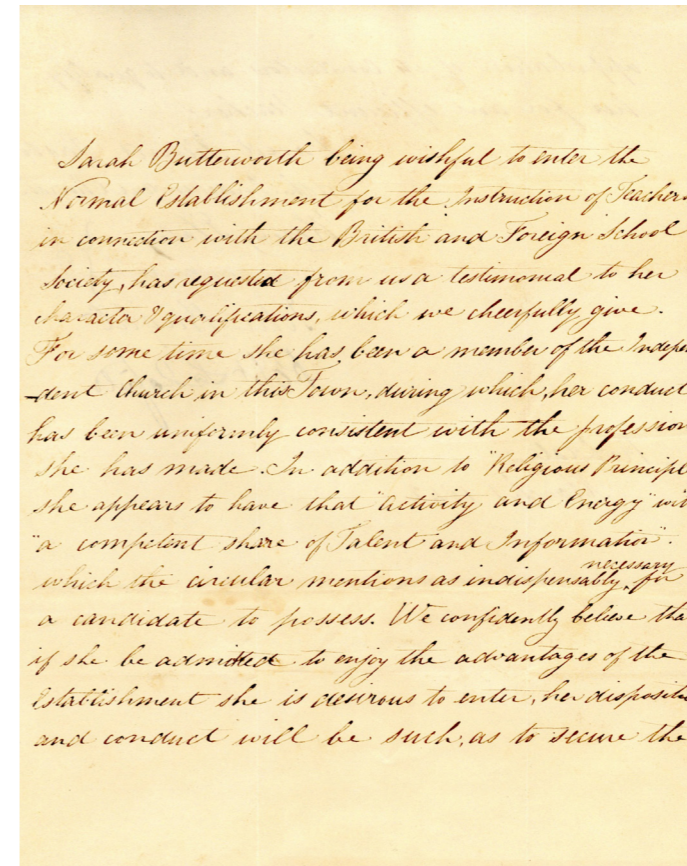 Sarah Butterworth being wishful to enter the
Normal Establishment for the Instruction of Teachers
in connection with the British and Foreign School
Society, has requested from us a testimonial to her
character & qualifications, which we cheerfully give.
For some time she has been a member of the Indepen
-dent Church in this Town, during which, her conduct
has been uniformly consistent with the profession
she has made. In addition to "Religious Principl
she appears to have that "Activity and Energy" with
"a competent share of Talent and Information".
which the circular mentions as indispensably necessary for
a candidate to possess. We confidently believe tha
if she be admitted to enjoy the advantages of the
Establishment she is desirous to enter, her dispositi
and conduct will be such, as to secure the